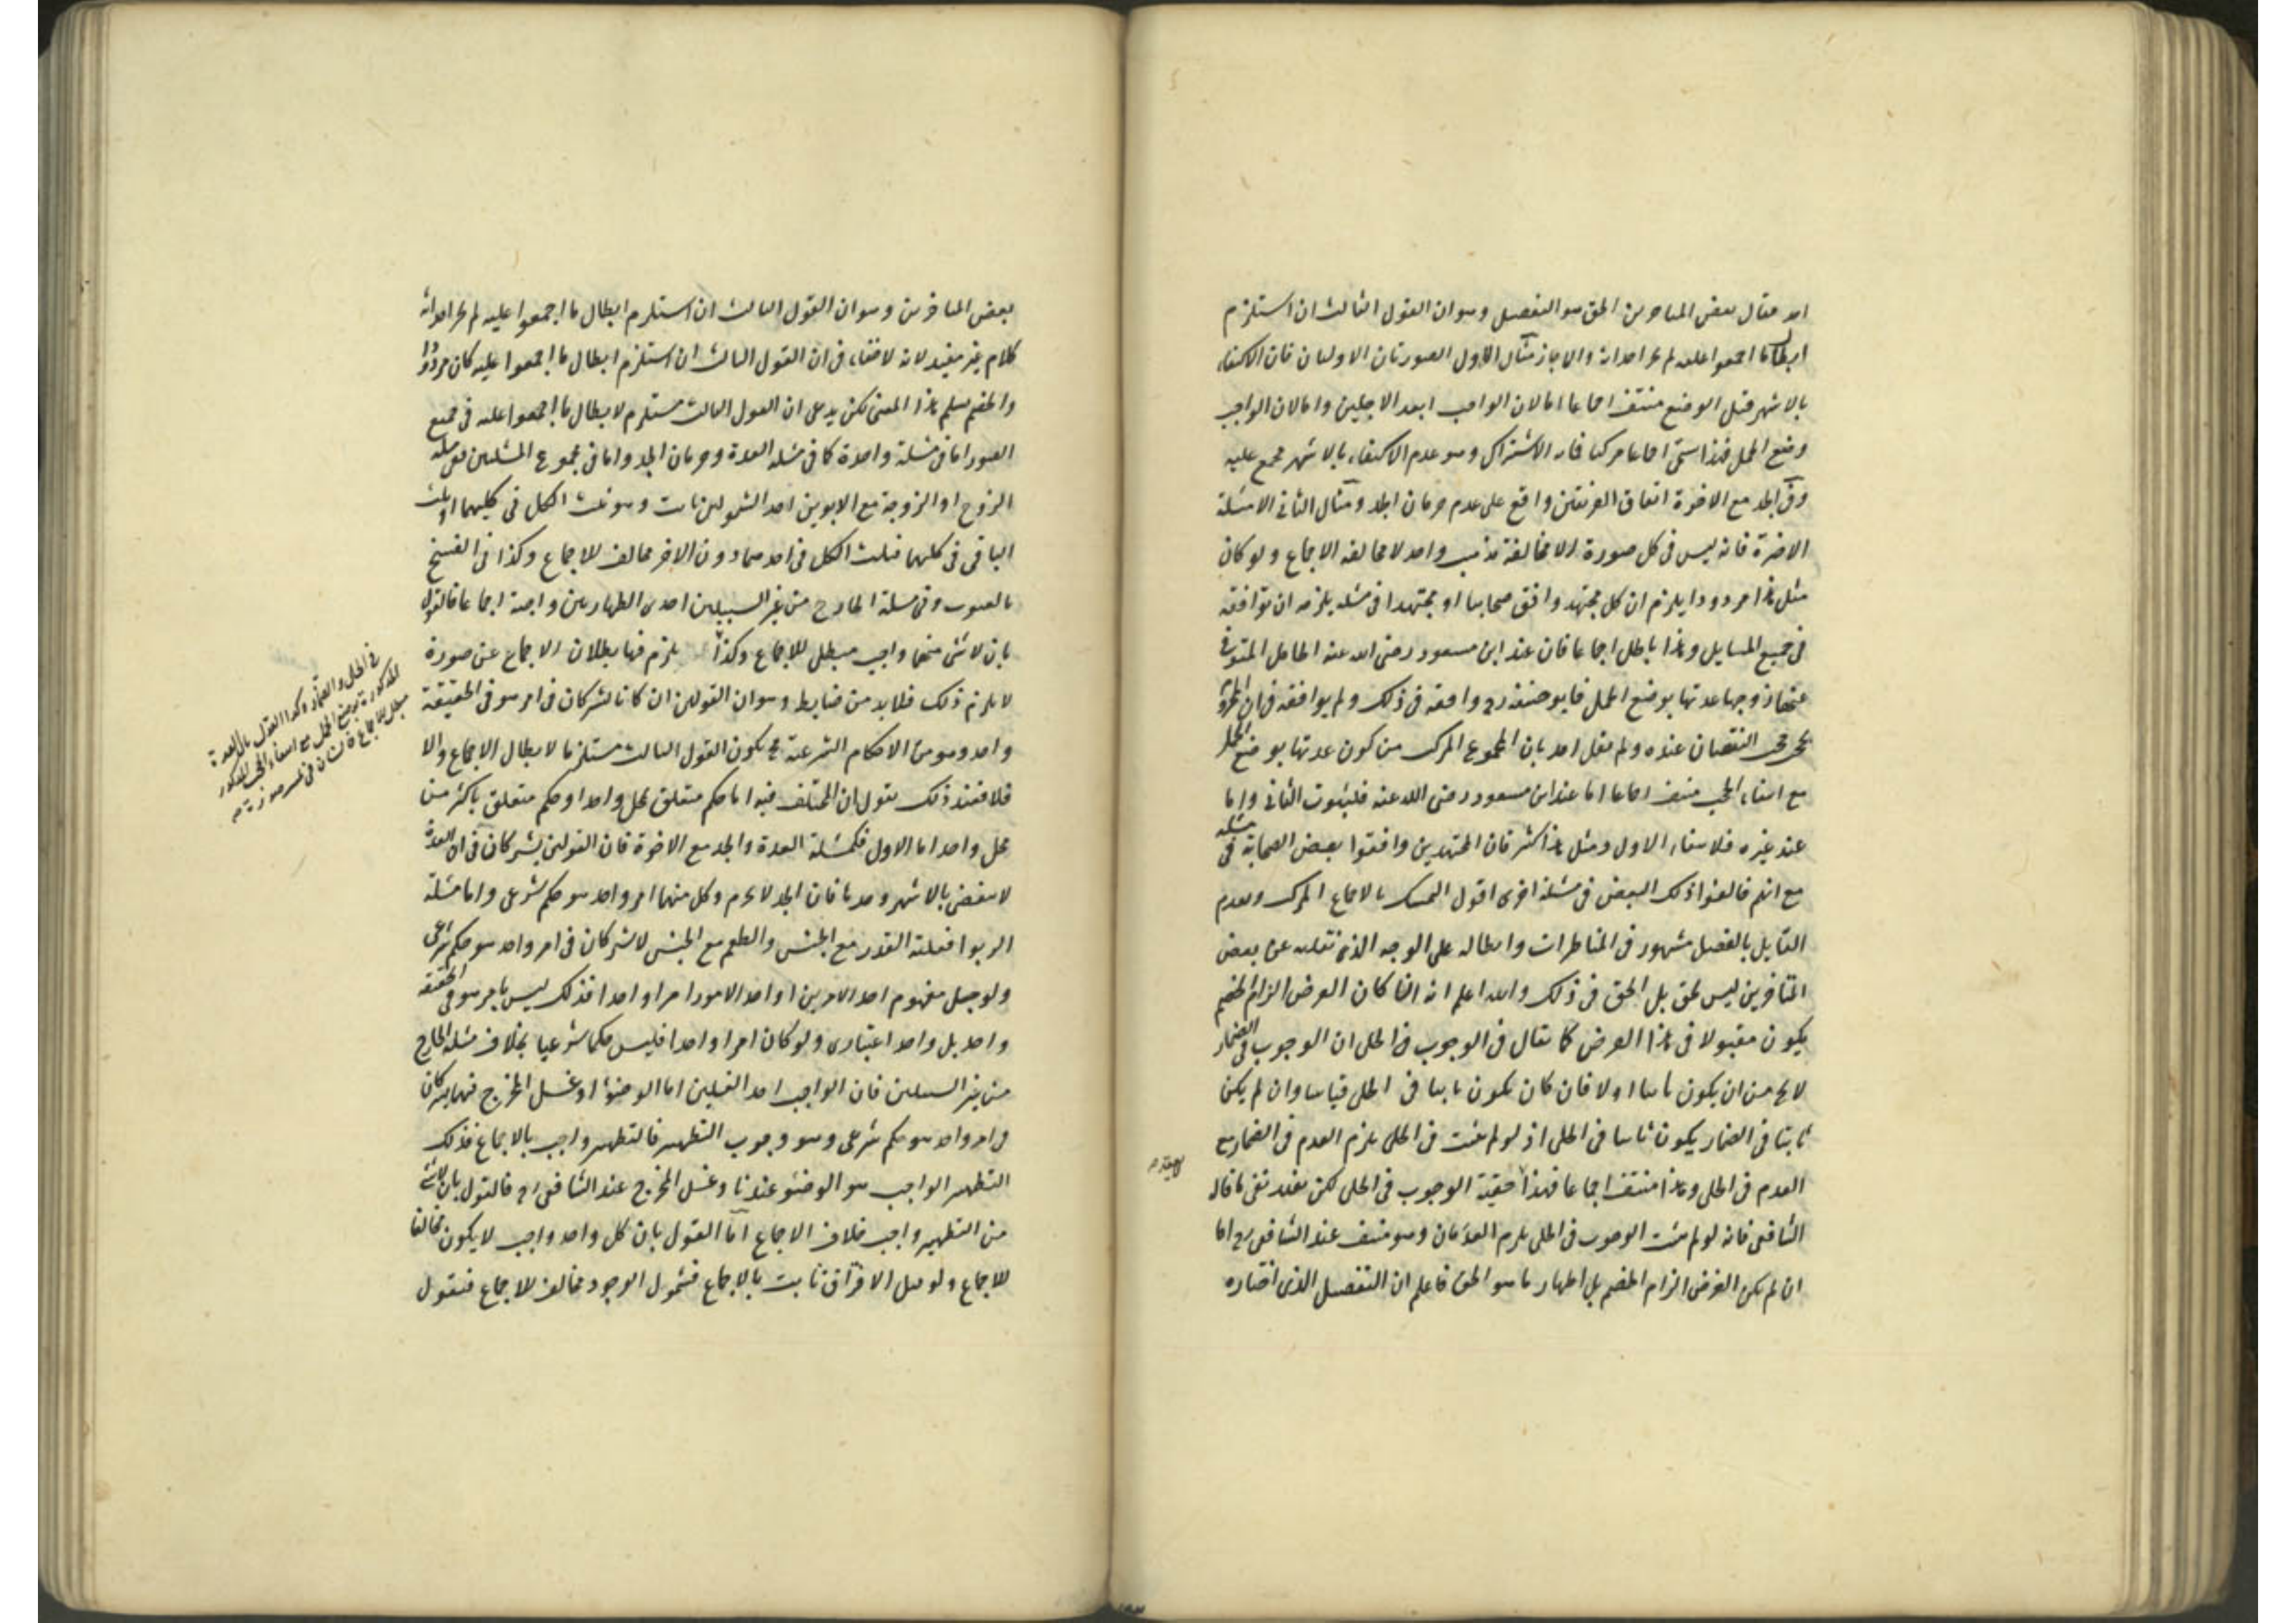 احد فقال بعض المتاخرين الحق هو التفصيل وهو ان القول الثالث ان استلزم
ابطال ما اجمعوا عليه لم يجز احداثه والا جاز مثال الاول الصورتان الاوليان فان الاكتفاء
بالاشهر قبل الوضع منتف اجماعا اما لان الواجب ابعد الاجلين واما لان الواجب
وضع الحمل فهذا يسمى اجماعا مركبا فما به الاشتراك وهو عدم الاكتفاء بالاشهر مجمع عليه
وفي الجد مع الاخوة اتفاق الفريقين واقع على عدم حرمان الجد ومثال الثاني الامثلة
الاخيرة فانه ليس في كل صورة الا مخالفة مذهب واحد لا مخالفة الاجماع ولو كان
مثل هذا مردودا يلزم ان كل مجتهد وافق صحابيا او مجتهدا في مسئلة يلزمه ان يوافقه
في جميع المسايل وهذا باطل اجماعا فان عند ابن مسعود رضى الله عنه الحامل المتوفى
عنها زوجها عدتها بوضع الحمل فابو حنيفة رح وافقه في ذلك ولم يوافقه في ان المحروم
يحجب حجب النقصان عنده ولم يقل احد بان المجموع المركب من كون عدتها بوضع الحمل
مع انتفاء الحجب منتف اجماعا اما عند ابن مسعود رضى الله عنه فلثبوت الثاني واما
عند غيره فلانتفاء الاول ومثل هذا كثير فان المجتهدين وافقوا بعض الصحابة في مسئلة
مع انهم خالفوا ذلك البعض في مسئلة اخرى اقول التمسك بالاجماع المركب وبعدم
القايل بالفصل مشهور في المناظرات وابطاله على الوجه الذي نقلته عن بعض
المتاخرين ليس بحق بل الحق في ذلك والله اعلم انه ان كان الغرض الزام الخصم
يكون مقبولا في هذا الغرض كما يقال في الوجوب في الحلي ان الوجوب في الضمار
لا يخ من ان يكون ثابتا اولا فان كان يكون ثابتا في الحلي قياسا وان لم يكن
ثابتا في الضمار يكون ثابتا في الحلي اذ لو لم يثبت في الحلي يلزم العدم في الضمار مع
العدم في الحلي وهذا منتف اجماعا فهذا حقية الوجوب في الحلي لكن يفيد نفي ما قاله
الشافعي فانه لو لم يثبت الوجوب في الحلي يلزم العدمان وهو منتف عند الشافعي رح اما
ان لم يكن الغرض الزام الخصم بل اظهار ما هو الحق فاعلم ان التفصيل الذي اختاره
بعض المتاخرين وهو ان القول الثالث ان استلزم ابطال ما اجمعوا عليه لم يجز احداثه
كلام غير مفيد لانه لا خفاء في ان القول الثالث ان استلزم ابطال ما اجمعوا عليه كان مردودا
والخصم يسلم هذا المعنى لكن يدعى ان القول الثالث مستلزم لابطال ما اجمعوا عليه في جميع
الصور اما في مسئلة واحدة كما في مسئلة العدة وحرمان الجد واما في مجموع المسئلتين ففي مسئلة
الزوج او الزوجة مع الابوين احد الشمولين ثابت وهو ثلث الكل في كليهما او ثلث
الباقي في كليهما فثلث الكل في احدهما دون الاخر مخالف للاجماع وكذا في الفسخ
بالعيوب وفي مسئلة الخارج من غير السبيلين احدى الطهارتين واجبة اجماعا فالقول
بان لا شى منهما واجب مبطل للاجماع وكذا يلزم فيها بطلان الاجماع عن صورة
لا يلزم ذلك فلا بد من ضابط وهو ان القولين ان كانا يشتركان في امر هو في الحقيقة
واحد وهو من الاحكام الشرعية فح يكون القول الثالث مستلزما لابطال الاجماع والا
فلا فعند ذلك نقول ان المختلف فيه اما حكم متعلق بمحل واحد او حكم متعلق باكثر من
محل واحد اما الاول فكمسئلة العدة والجد مع الاخوة فان القولين يشتركان في ان العدة
لا تنقضي بالاشهر وحدها فان الجد لا يحرم وكل منهما امر واحد هو حكم شرعي واما مسئلة
الربوا فعلته القدر مع الجنس والطعم مع الجنس لا يشتركان في امر واحد هو حكم شرعي
ولو جعل مفهوم احد الامرين او احد الامور امرا واحدا فذلك ليس بامر هو في الحقيقة
واحد بل واحد اعتبارى ولو كان امرا واحدا فليس حكما شرعيا بخلاف مسئلة الخارج
من غير السبيلين فان الواجب احد الغسلين اما الوضوء او غسل المخرج فهما يشتركان
في امر واحد هو حكم شرعي وهو وجوب التطهير فالتطهير واجب بالاجماع فذلك
التطهير الواجب هو الوضوء عندنا وغسل المخرج عند الشافعي رح فالقول بان لا شئ
من التطهير واجب خلاف الاجماع اما القول بان كل واحد واجب لا يكون مخالفا
للاجماع ولو قيل الافتراق ثابت بالاجماع فشمول الوجود مخالف للاجماع فنقول
في الحلي والضمار وكذا القول بان العدة
المذكورة بوضع الحمل مع انتفاء الحجب المذكور